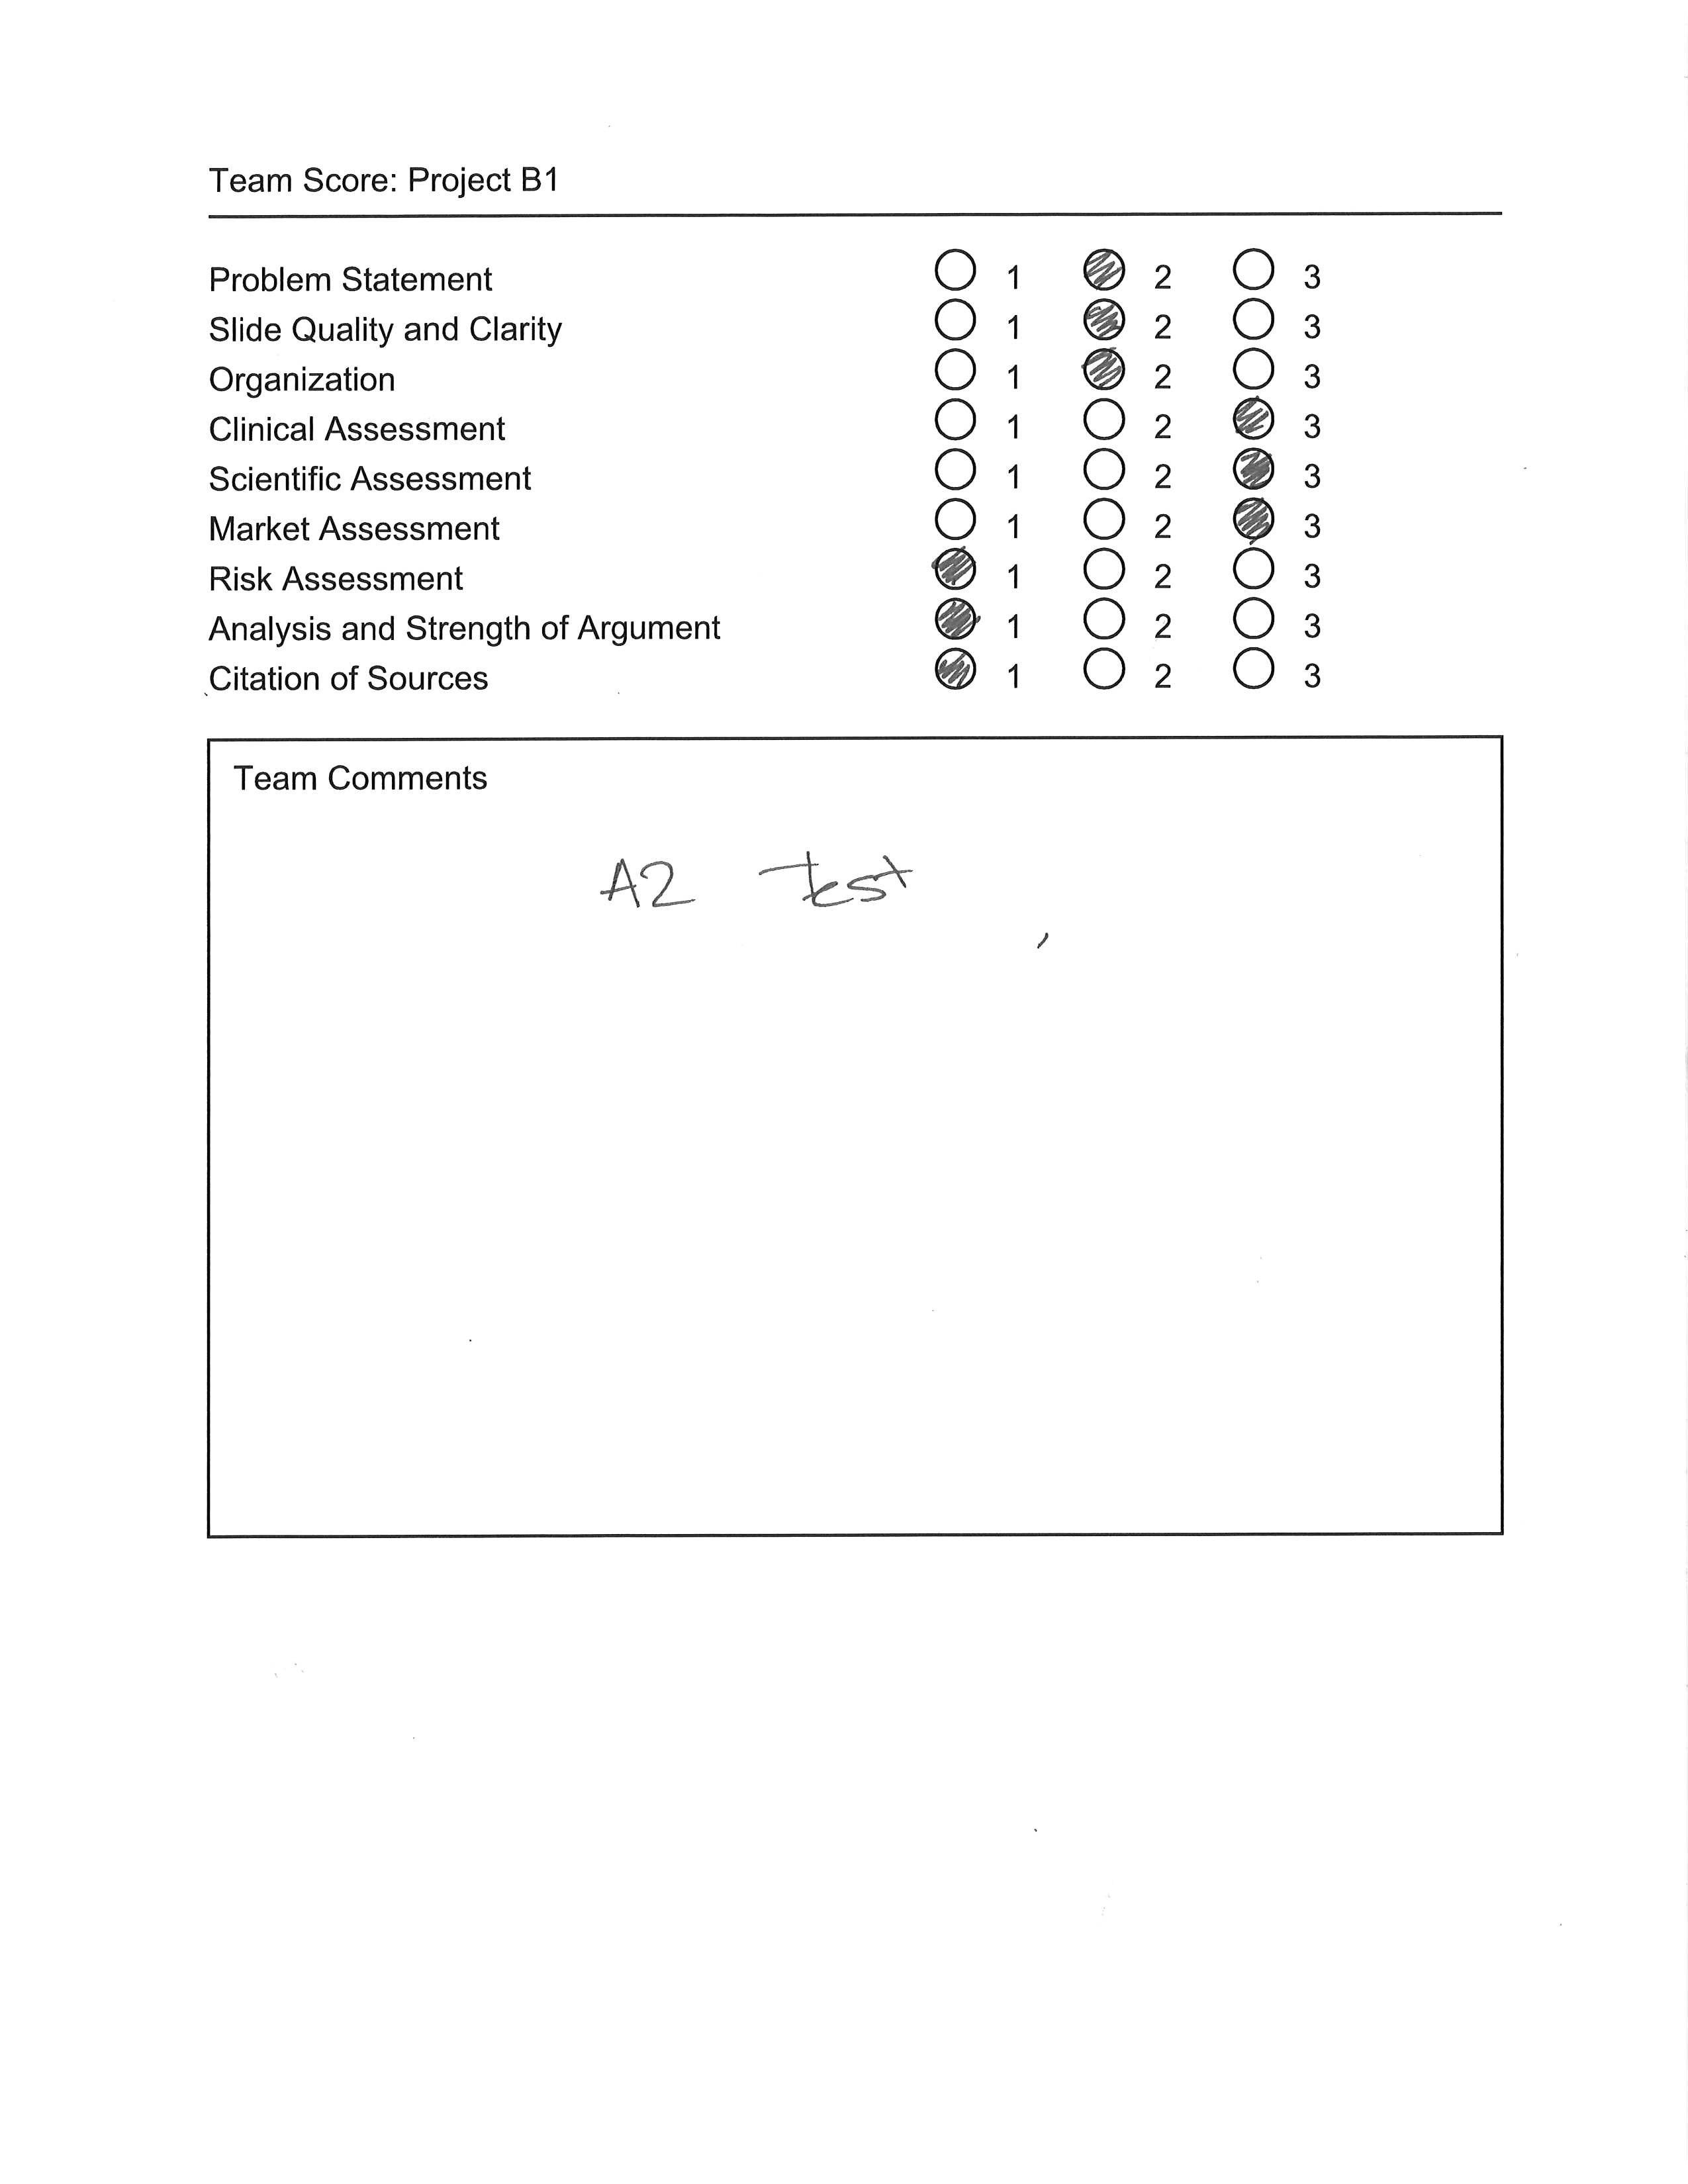 Team Score: Project B1
Problem Statement 1 2 3
Slide Quality and Clarity 1 2 3
Organization 1 2 3
Clinical Assessment 1 2 3
Scientific Assessment 1 2 3
Market Assessment 1 2 3
Risk Assessment 1 2 3
Analysis and Strength of Argument 1 2 3
Citation of Sources 1 2 3
Team Comments
A2 Test